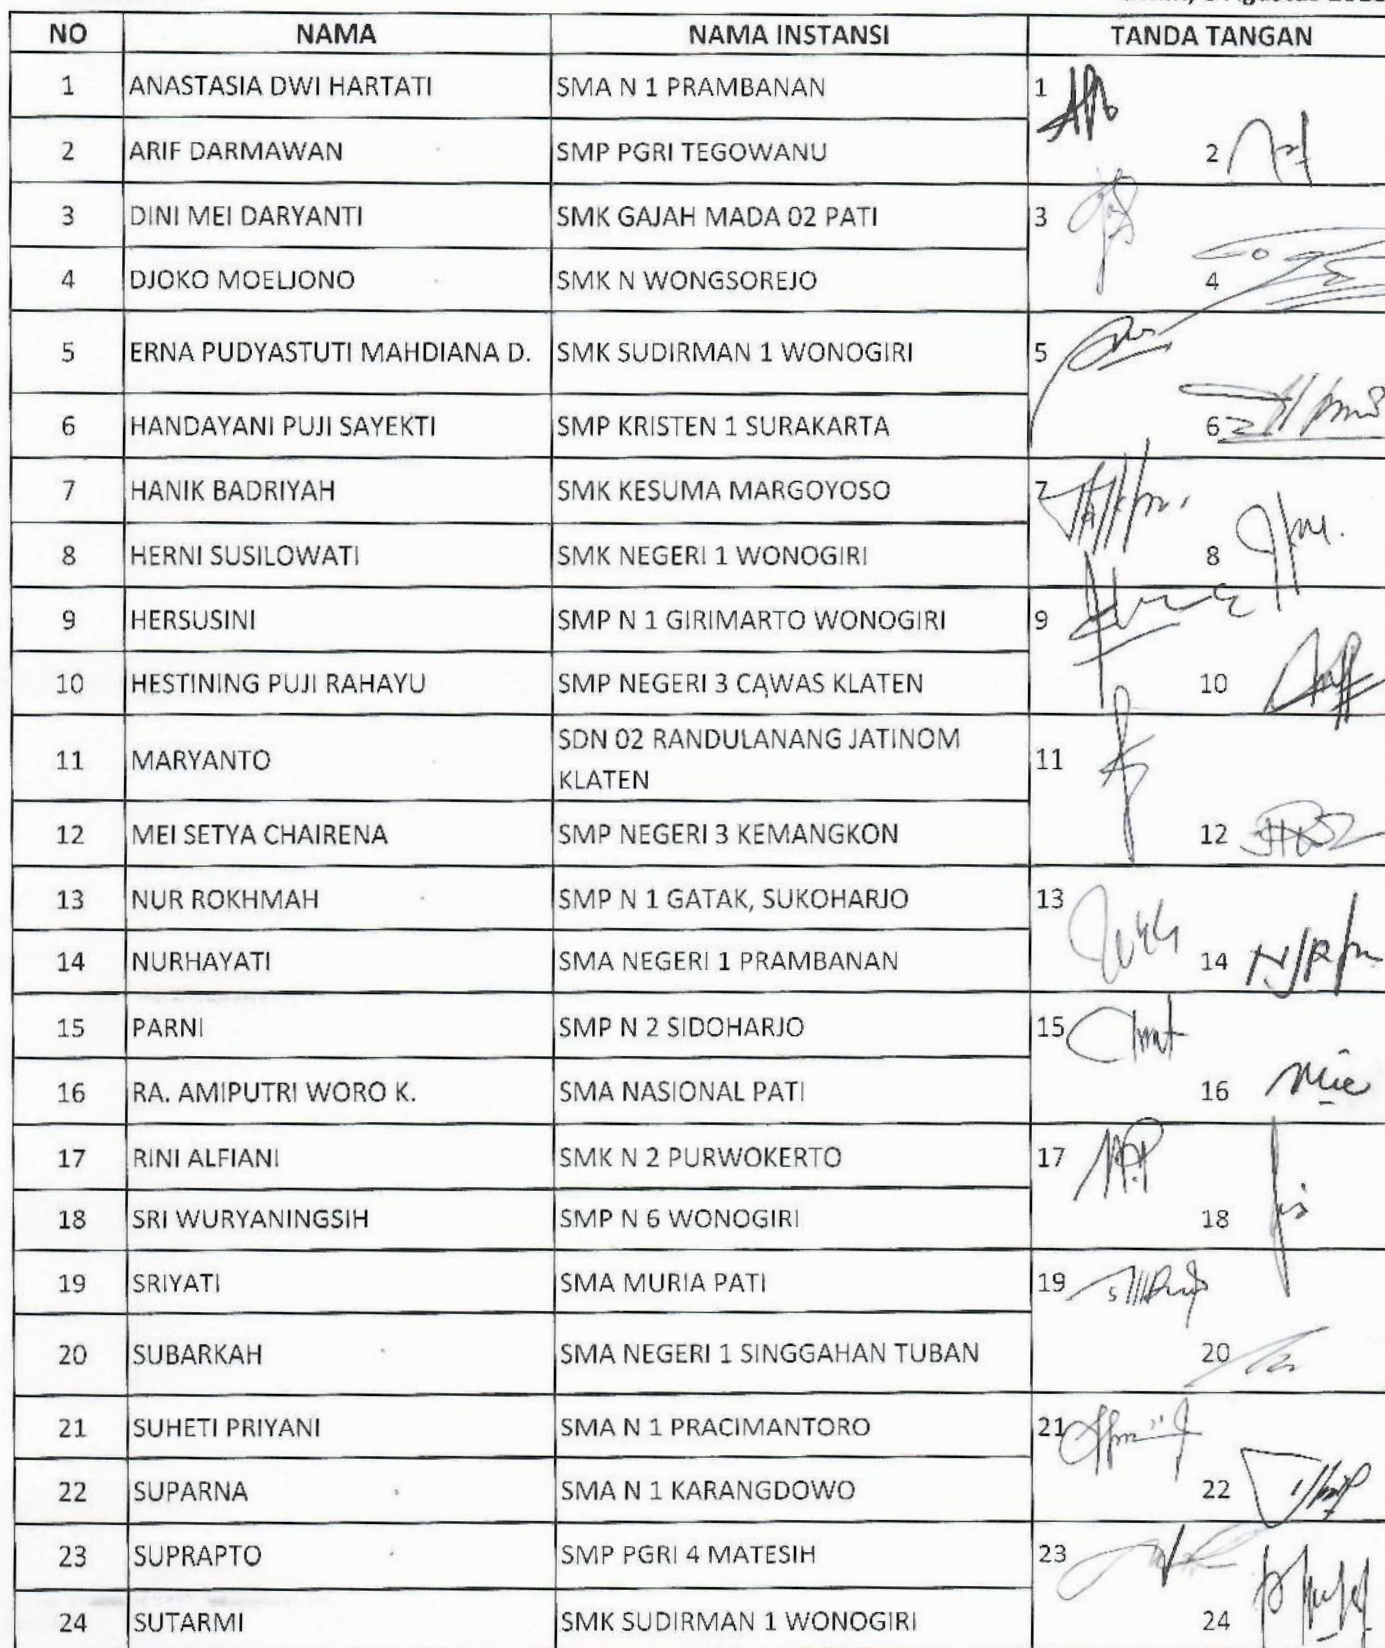 NO NAMA NAMA INSTANSI TANDA TANGAN
1 ANASTASIA DWI HARTATI SMA N 1 PRAMBANAN 1
2 ARIF DARMAWAN SMP PGRI TEGOWANU 2
3 DINI MEI DARYANTI SMK GAJAH MADA 02 PATI 3
4 DJOKO MOELJONO SMK N WONGSOREJO 4
5 ERNA PUDYASTUTI MAHDIANA D. SMK SUDIRMAN 1 WONOGIRI 5
6 HANDAYANI PUJI SAYEKTI SMP KRISTEN 1 SURAKARTA 6
7 HANIK BADRIYAH SMK KESUMA MARGOYOSO 7
8 HERNI SUSILOWATI SMK NEGERI 1 WONOGIRI 8
9 HERSUSINI SMP N 1 GIRIMARTO WONOGIRI 9
10 HESTINING PUJI RAHAYU SMP NEGERI 3 CAWAS KLATEN 10
11 MARYANTO SDN 02 RANDULANANG JATINOM 11
KLATEN
12 MEI SETYA CHAIRENA SMP NEGERI 3 KEMANGKON 12
13 NUR ROKHMAH SMP N 1 GATAK, SUKOHARJO 13
14 NURHAYATI SMA NEGERI 1 PRAMBANAN 14
15 PARNI SMP N 2 SIDOHARJO 15
16 RA. AMIPUTRI WORO K. SMA NASIONAL PATI 16
17 RINI ALFIANI SMK N 2 PURWOKERTO 17
18 SRI WURYANINGSIH SMP N 6 WONOGIRI 18
19 SRIYATI SMA MURIA PATI 19
20 SUBARKAH SMA NEGERI 1 SINGGAHAN TUBAN 20
21 SUHETI PRIYANI SMA N 1 PRACIMANTORO 21
22 SUPARNA SMA N 1 KARANGDOWO 22
23 SUPRAPTO SMP PGRI 4 MATESIH 23
24 SUTARMI SMK SUDIRMAN 1 WONOGIRI 24